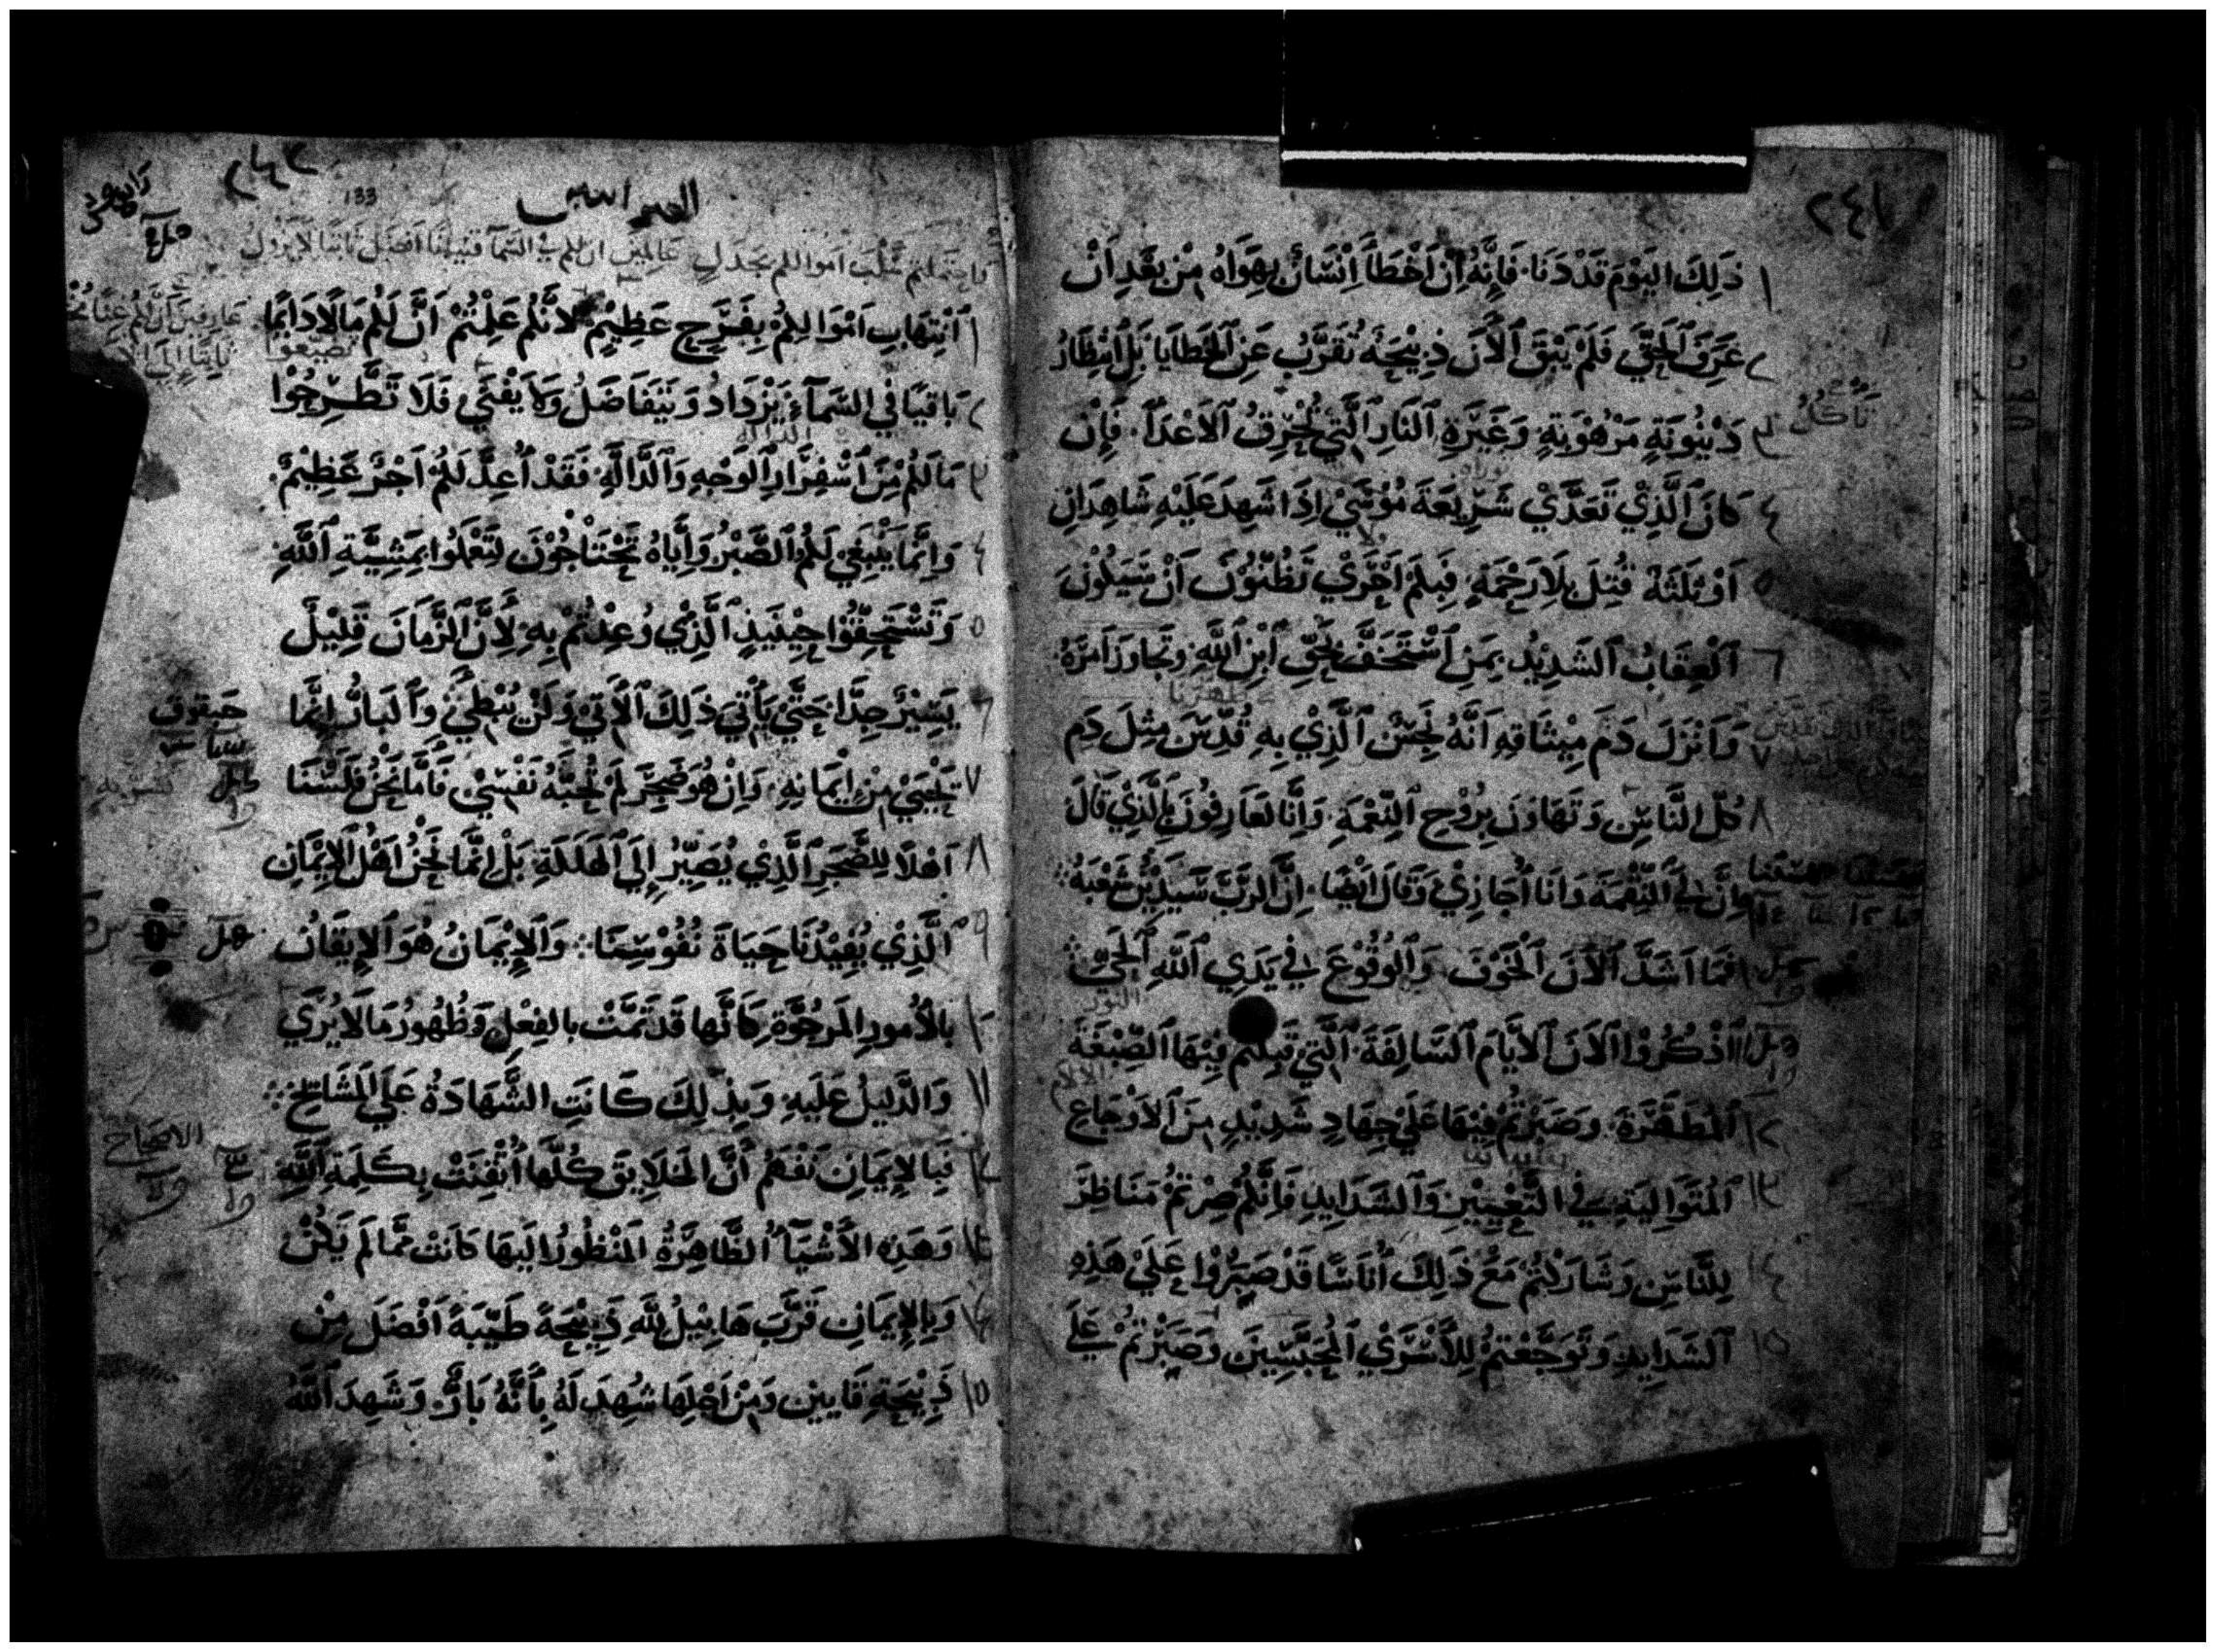 ٢٤١
١ ذَلِكَ اليَوْمَ قَدْ دَنَا. فَإِنَّهُ اِنْ اَخْطَأَ اِنْسَانٌ بِهَوَاهُ مِنْ بَعْدِ اَنْ
٢ عَرَفَ اَلْحَقَّ فَلَمْ يَبْقَ اَلْاَنَ ذَبِيْحَةٌ تُقَرَّبُ عَنِ اَلْخَطَايَا بَلْ اِنْتِظَارُ
٣ دَيْنُونَةٍ مَرْهُوْبَةٍ وَغَيْرَةِ اَلْنَارِ اَلَّتِي تُحْرِقُ اَلاَعْدَآ. فَإِنْ
تَاكُلُ
٤ كَانَ اَلَّذِيْ تَعَدَّيْ شَرِيْعَةَ مُوْسَيْ اِذَا شَهِدَ عَلَيْهِ شَاهِدَانِ
٥ اَوْ ثَلَثَةٌ قُتِلَ بِلَا رَحْمَةٍ. فَبِكَمْ اَحْرَيْ تَظُنُّوْنَ اَنْ سَيَكُوْنَ
٦ اَلْعِقَابُ اَلشَدِيْدُ بِمَنِ اَسْتَخَفَّ بِحَقِّ اَبْنِ اَللَّهِ وَتَجَاوَزَ اَمْرَهُ
٧ وَاَنْزَلَ دَمَ مِيْثَاقِهِ اَنَّهُ نَجِسٌ اَلَّذِيْ بِهِ قُدِّسَ مِثْلَ دَمِ
٨ كُلِّ النَّاسِ وَتَهَاوَنَ بِرُوْحِ اَلنِّعْمَةِ. وَاِنَّا لَعَارِفُوْنَ بِالَّذِيْ قَالَ
اِنَّ لِيَ النِّقْمَةَ وَاَنَا اُجَازِيْ وَقَالَ اَيْضًا. اِنَّ الرَّبَّ سَيَدِيْنُ شَعْبَهُ
١٠ فَمَا اَشَدَّ اَلاَنَ اَلْخَوْفَ وَاَلْوُقُوْعَ فِي يَدَيِ اَللَّهِ اَلْحَيِّ
١١ اَذْكُرُوْا اَلاَنَ اَلاَيَّامَ اَلسَّالِفَةَ اَلَّتِي قَبِلْتُمْ فِيْهَا اَلصِّبْغَةَ
١٢ اَلْمُطَهِّرَةَ. وَصَبَرْتُمْ فِيْهَا عَلَيْ جِهَادِ شَدِيْدٍ مِنَ اَلاَوْجَاعِ
١٣ اَلْمُتَوَالِيَةِ فِي التَّعْيِيْرِ وَاَلشَدَايِدِ فَاِنَّكُمْ صِرْتُمْ مَنَاظِرَ
١٤ لِلنَّاسِ وَشَارَكْتُمْ مَعْ ذَلِكَ اُنَاسًا قَدْ صَبَرُوْا عَلَيْ هَذِهِ
١٥ اَلشَدَايِدِ وَتَوَجَّعْتُمْ لِلاَسْرَيْ اَلْمُحَبَّسِيْنَ وَصَبَرْتُمْ عَلَي
٢٤٢
133
العبرانيين
١ اَنْتِهَابِ اَمْوَالِكُمْ بِفَرَحٍ عَظِيْمٍ لاَنَّكُمْ عَلِمْتُمْ اَنَّ لَكُمْ مَالًا دَايِمًا
٢ بَاقِيًا فِي السَّمَآءِ يَزْدَادُ وَيَتَفَاضَلُ وَلاَ يَفْنَي فَلاَ تَطْرَحُوْا
٣ مَا لَكُمْ مِنَ اَسْفِرَارِ اَلْوَجْهِ وَاَلدَّالَّةِ. فَقَدْ اُعِدَّ لَكُمْ اَجْرٌ عَظِيْمٌ.
٤ وَاِنَّمَا يَنْبَغِي لَكُمُ الصَّبْرُ وَاِيَّاهُ تَحْتَاجُوْنَ لِتَعْمَلُوا بِمَشِيَّةِ اَللَّهِ
٥ وَتَسْتَحِقُّوْا حِيْنَيِذٍ اَلَّذِيْ وُعِدْتُمْ بِهِ لِاَنَّ الزَّمَانَ قَلِيْلٌ
٦ يَسِيْرٌ جِدًّا حَتَّيْ يَأْتِي ذَلِكَ اَلْاَتِي وَلَنْ يُبْطِيَ وَاَلْبَارُّ اِنَّمَا
حبقوق
٧ يَحْيَيْ مِنْ اِيْمَانِهِ. وَاِنْ هُوَ ضَجِرَ لَمْ تُحِبَّهُ نَفْسِيْ فَاَمَّا نَحْنُ فَلَسْنَا
٨ اَهْلًا لِلضَّجَرِ اَلَّذِيْ يُصَيِّرُ إِلَي الْهَلَكَةِ بَلْ اِنَّمَا نَحْنُ اَهْلُ الاِيْمَانِ
٩ اَلَّذِي يُفِيْدُنَا حَيَاةَ نُفُوْسِنَا. وَاَلْاِيْمَانُ هُوَ اَلاِيقَانُ
١٠ بِالاُمُورِ المَرْجُوَّةِ كَاَنَّهَا قَدْ تَمَّتْ بالفِعْلِ وَظُهُورُ مَا لاَ يُرَي
١١ وَالدَّلِيلُ عَلَيْهِ وَبِذَلِكَ كَانَتِ الشَّهَادَةُ عَلَي اَلْمَشَايِخِ
الاصحاح
١٢ فَبِالاِيمَانِ نَفْهَمُ أَنَّ الْخَلاَيِقَ كُلَّهَا اُتْقِنَتْ بِكَلِمَةِ اَللَّهِ
١٣ وَهَذِهِ الاَشْيَآءُ الظَّاهِرَةُ المَنْظُورُ اِلَيهَا كَانَتْ مِمَّا لَمْ يَكُنْ
١٤ وَبِالاِيمَانِ قَرَّبَ هَابِيْلُ لِلَّهِ ذَبِيْحَةً طَيِّبَةً اَفْضَلَ مِنْ
١٥ ذَبِيْحَةِ قَايِينِ وَمِنْ اَجْلِهَا شُهِدَ لَهُ بِأَنَّهُ بَارٌّ وَشَهِدَ اَللَّهُ